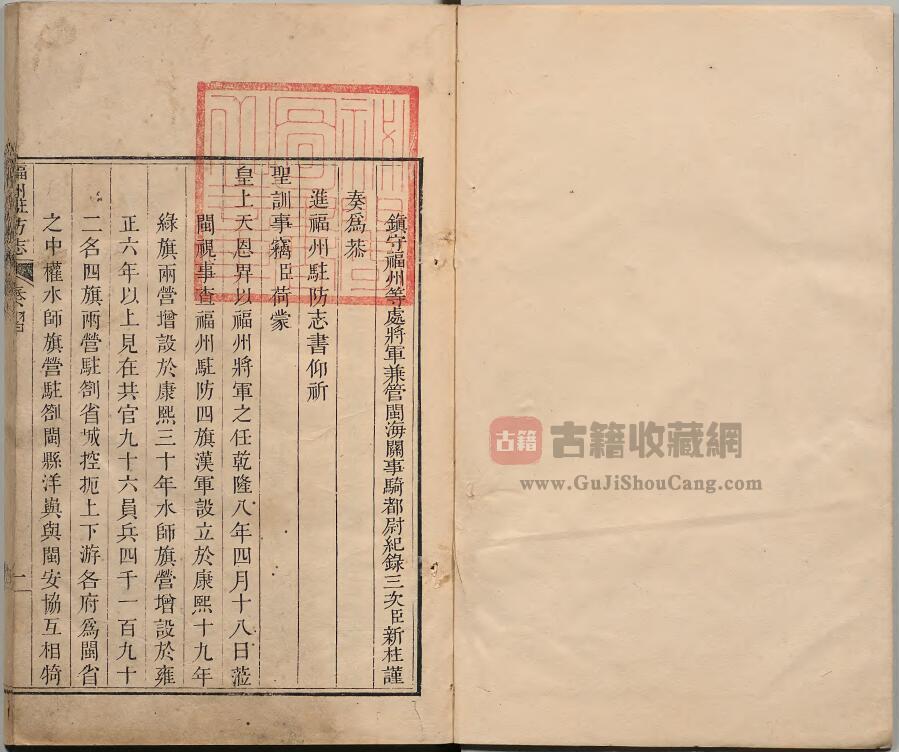 鎮守福州等處將軍兼管閩海關事騎都尉紀錄三次臣新柱謹
奏爲恭
進福州駐防志書仰祈
聖訓事竊臣荷蒙
皇上天恩畀以福州將軍之任乾隆八年四月十八日蒞
閩視事查福州駐防四旗漢軍設立於康熙十九年
綠旗兩營增設於康熙三十年水師旗營增設於雍
正六年以上見在共官九十六員兵四千一百九十
二名四旗兩營駐劄省城控扼上下游各府爲閩省
之中權水師旗營駐劄閩縣洋嶼與閩安協互相犄
福州駐防志
一
古籍
古籍收藏網
www.GuJiShouCang.com